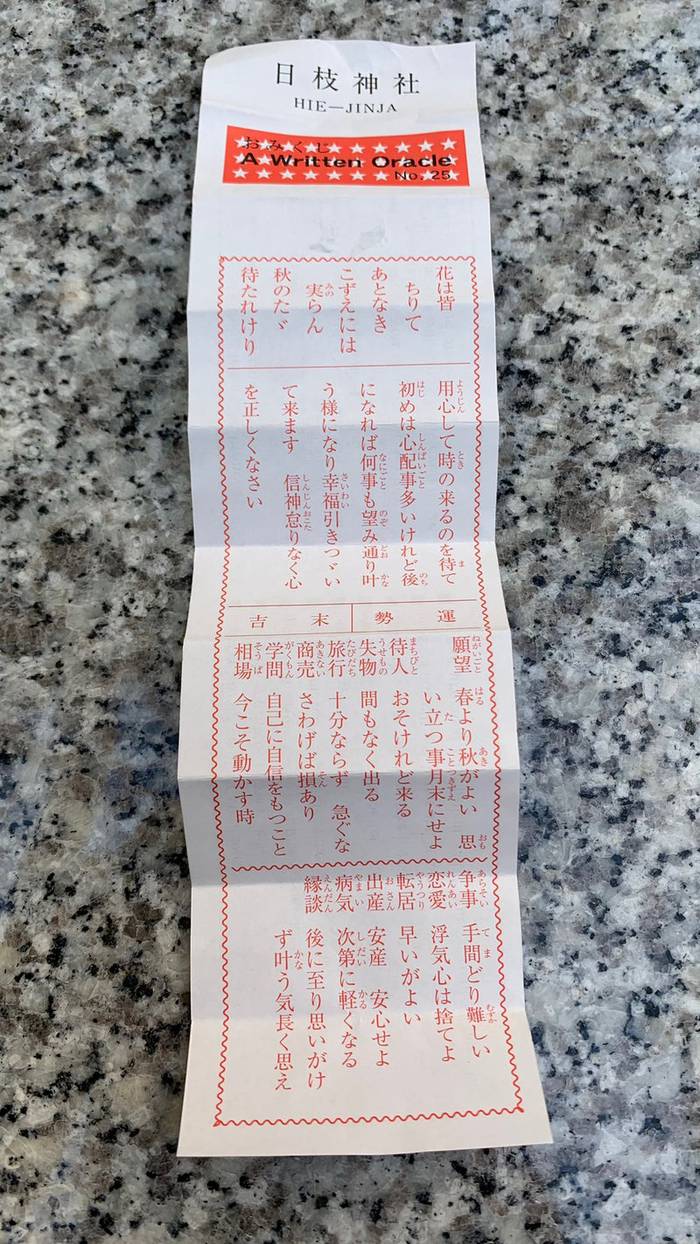 日枝神社
HIE—JINJA
おみくじ
A Written Oracle
No. 25
花は皆
ちりて
あとなき
こずえには
実らん
秋のたゞ
待たれけり
用心して時の来るのを待て
初めは心配事多いけれど後
になれば何事も望み通り叶
う様になり幸福引きつゞい
て来ます 信神怠りなく心
を正しくなさい
運勢 末吉
願望 春より秋がよい 思
い立つ事月末にせよ
待人 おそけれど来る
失物 間もなく出る
旅行 十分ならず 急ぐな
商売 さわげば損あり
学問 自己に自信をもつこと
相場 今こそ動かす時
争事 手間どり難しい
恋愛 浮気心は捨てよ
転居 早いがよい
出産 安産 安心せよ
病気 次第に軽くなる
縁談 後に至り思いがけ
ず叶う気長く思え